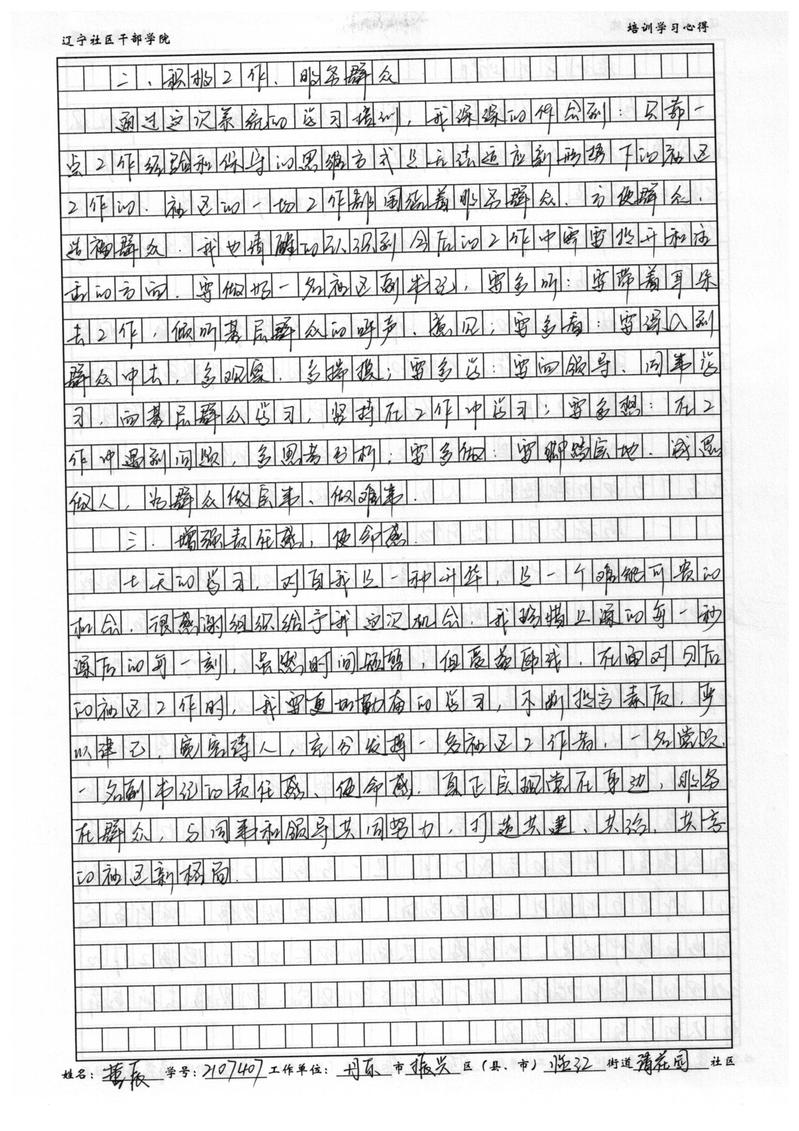 辽宁社区干部学院 培训学习心得
二、积极工作、服务群众
通过这次系统的学习培训，我深深的体会到：只靠一
点工作经验和保守的思维方式是无法适应新形势下的社区
工作的．社区的一切工作都围绕着服务群众、方便群众、
造福群众．我也清晰的认识到今后的工作中需要提升和注
重的方向．要做好一名社区副书记，要多听：要带着耳朵
去工作，倾听基层群众的呼声、意见；要多看：要深入到
群众中去，多观察、多揣摸；要多学：要向领导、同事学
习，向基层群众学习，坚持在工作中学习；要多想：在工
作中遇到问题，多思考分析；要多做：要脚踏实地、诚恳
做人，为群众做实事、做难事．
三．增强责任感，使命感．
七天的学习，对自我是一种升华，是一个难能可贵的
机会，很感谢组织给予我这次机会，我珍惜上课的每一秒
课后的每一刻，虽然时间短暂，但受益匪浅，在面对今后
的社区工作时，我要更加勤奋的学习，不断提高素质，严
以律己，宽容待人，充分发挥一名社区工作者，一名党员
一名副书记的责任感、使命感．真正实现党在身边，服务
在群众，与同事和领导共同努力，打造共建、共治、共享
的社区新格局．
姓名： 学号：2107407 工作单位：丹东 市 振兴 区（县、市） 临江 街道 社区